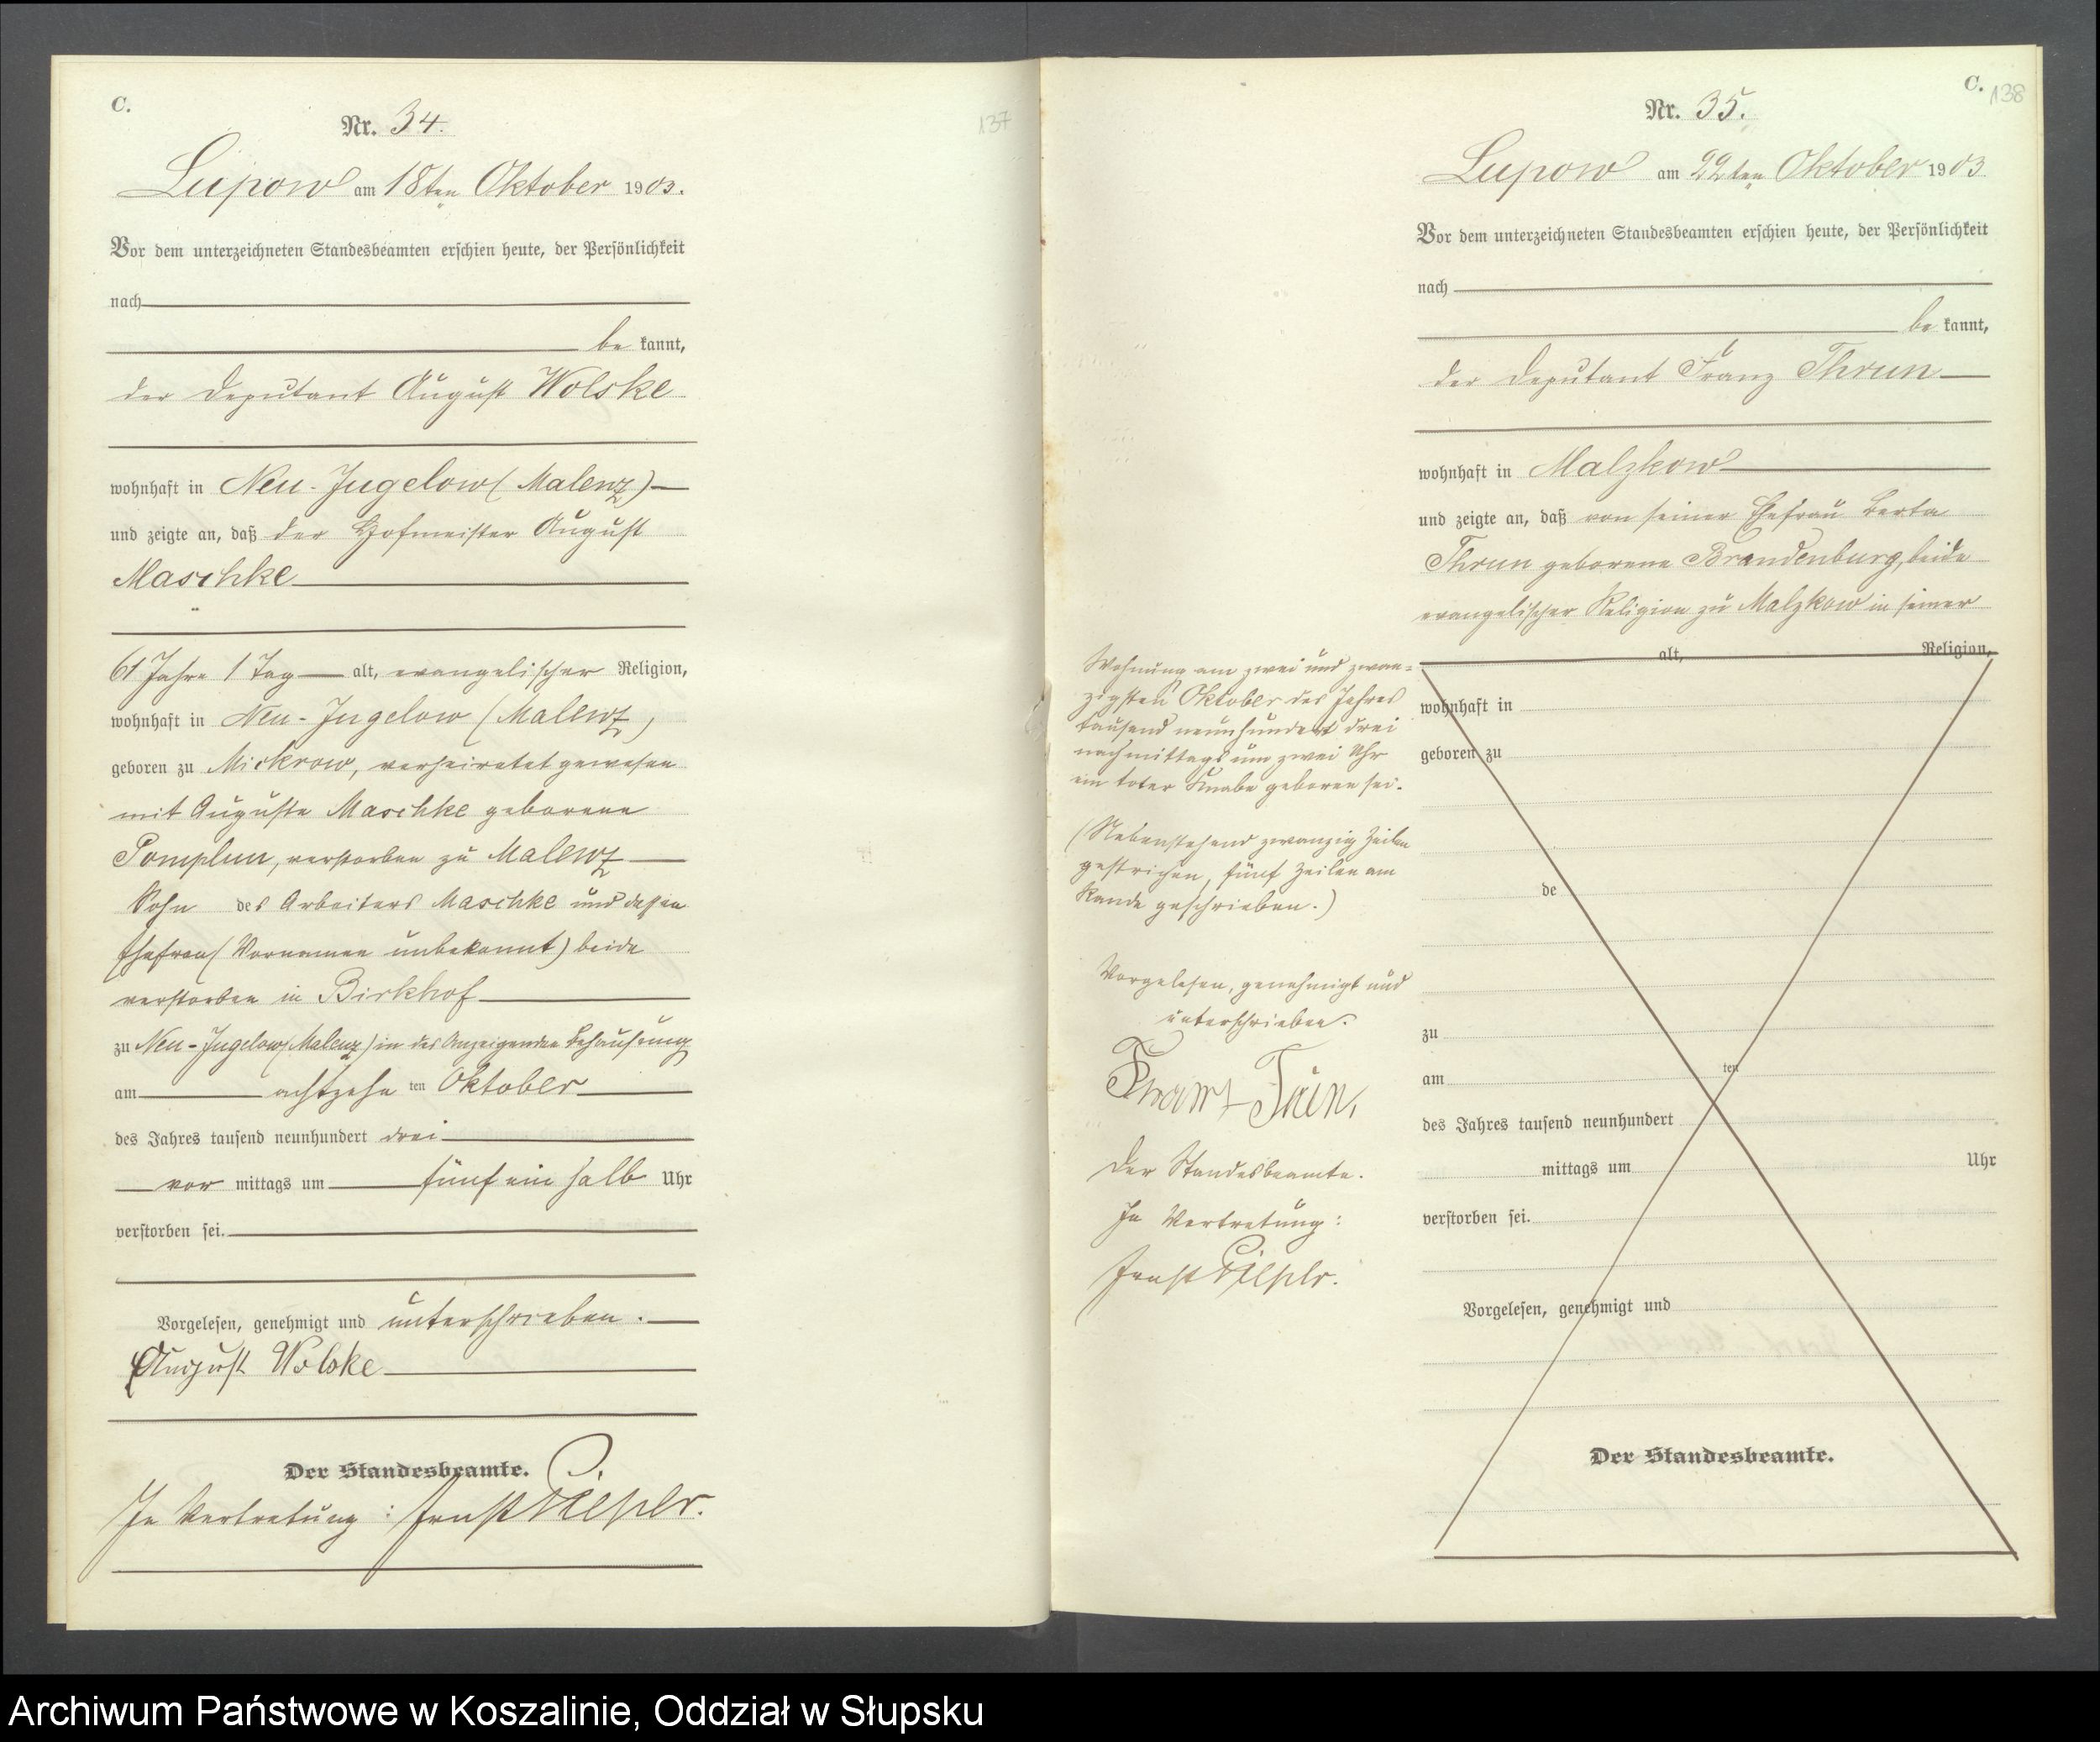 C.
Nr. 34.
137
Lupow am 18ten Oktober 1903.
Vor dem unterzeichneten Standesbeamten erschien heute, der Persönlichkeit
nach
be kannt,
der Deputant August Wolske
wohnhaft in Neu-Jugelow (Malenz)
und zeigte an, daß der Hofmeister August
Maschke
61 Jahre 1 Tag alt, evangelischer Religion,
wohnhaft in Neu-Jugelow (Malenz)
geboren zu Mickrow, verheiratet gewesen
mit Auguste Maschke geborene
Pomplun, verstorben zu Malenz
Sohn des Arbeiters Maschke und dessen
Ehefrau (Vornamen unbekannt) beide
verstorben in Birkhof
zu Neu-Jugelow (Malenz) in des Anzeigenden Behausung
am achtzehn ten Oktober
des Jahres tausend neunhundert drei
vor mittags um fünf ein halb Uhr
verstorben sei.
Vorgelesen, genehmigt und unterschrieben.
August Wolske
Der Standesbeamte.
In Vertretung: Ernst
C.
138
Nr. 35.
Lupow am 22ten Oktober 1903
Vor dem unterzeichneten Standesbeamten erschien heute, der Persönlichkeit
nach
be kannt,
der Deputant Franz Thrun
wohnhaft in Malzkow
und zeigte an, daß von seiner Ehefrau Berta
Thrun geborene Brandenburg, beide
evangelischer Religion zu Malzkow in seiner
alt, Religion,
wohnhaft in
geboren zu
de
zu
am ten
des Jahres tausend neunhundert
mittags um Uhr
verstorben sei.
Vorgelesen, genehmigt und
Der Standesbeamte.
Wohnung am zwei und zwan=
zigsten Oktober des Jahres
tausend neunhundert drei
nachmittags um zwei Uhr
ein toter Knabe geboren sei.
(Nebenstehend zwanzig Zeilen
gestrichen, fünf Zeilen am
Rande geschrieben.)
Vorgelesen, genehmigt und
unterschrieben.
Der Standesbeamte.
In Vertretung:
Ernst
Archiwum Państwowe w Koszalinie, Oddział w Słupsku